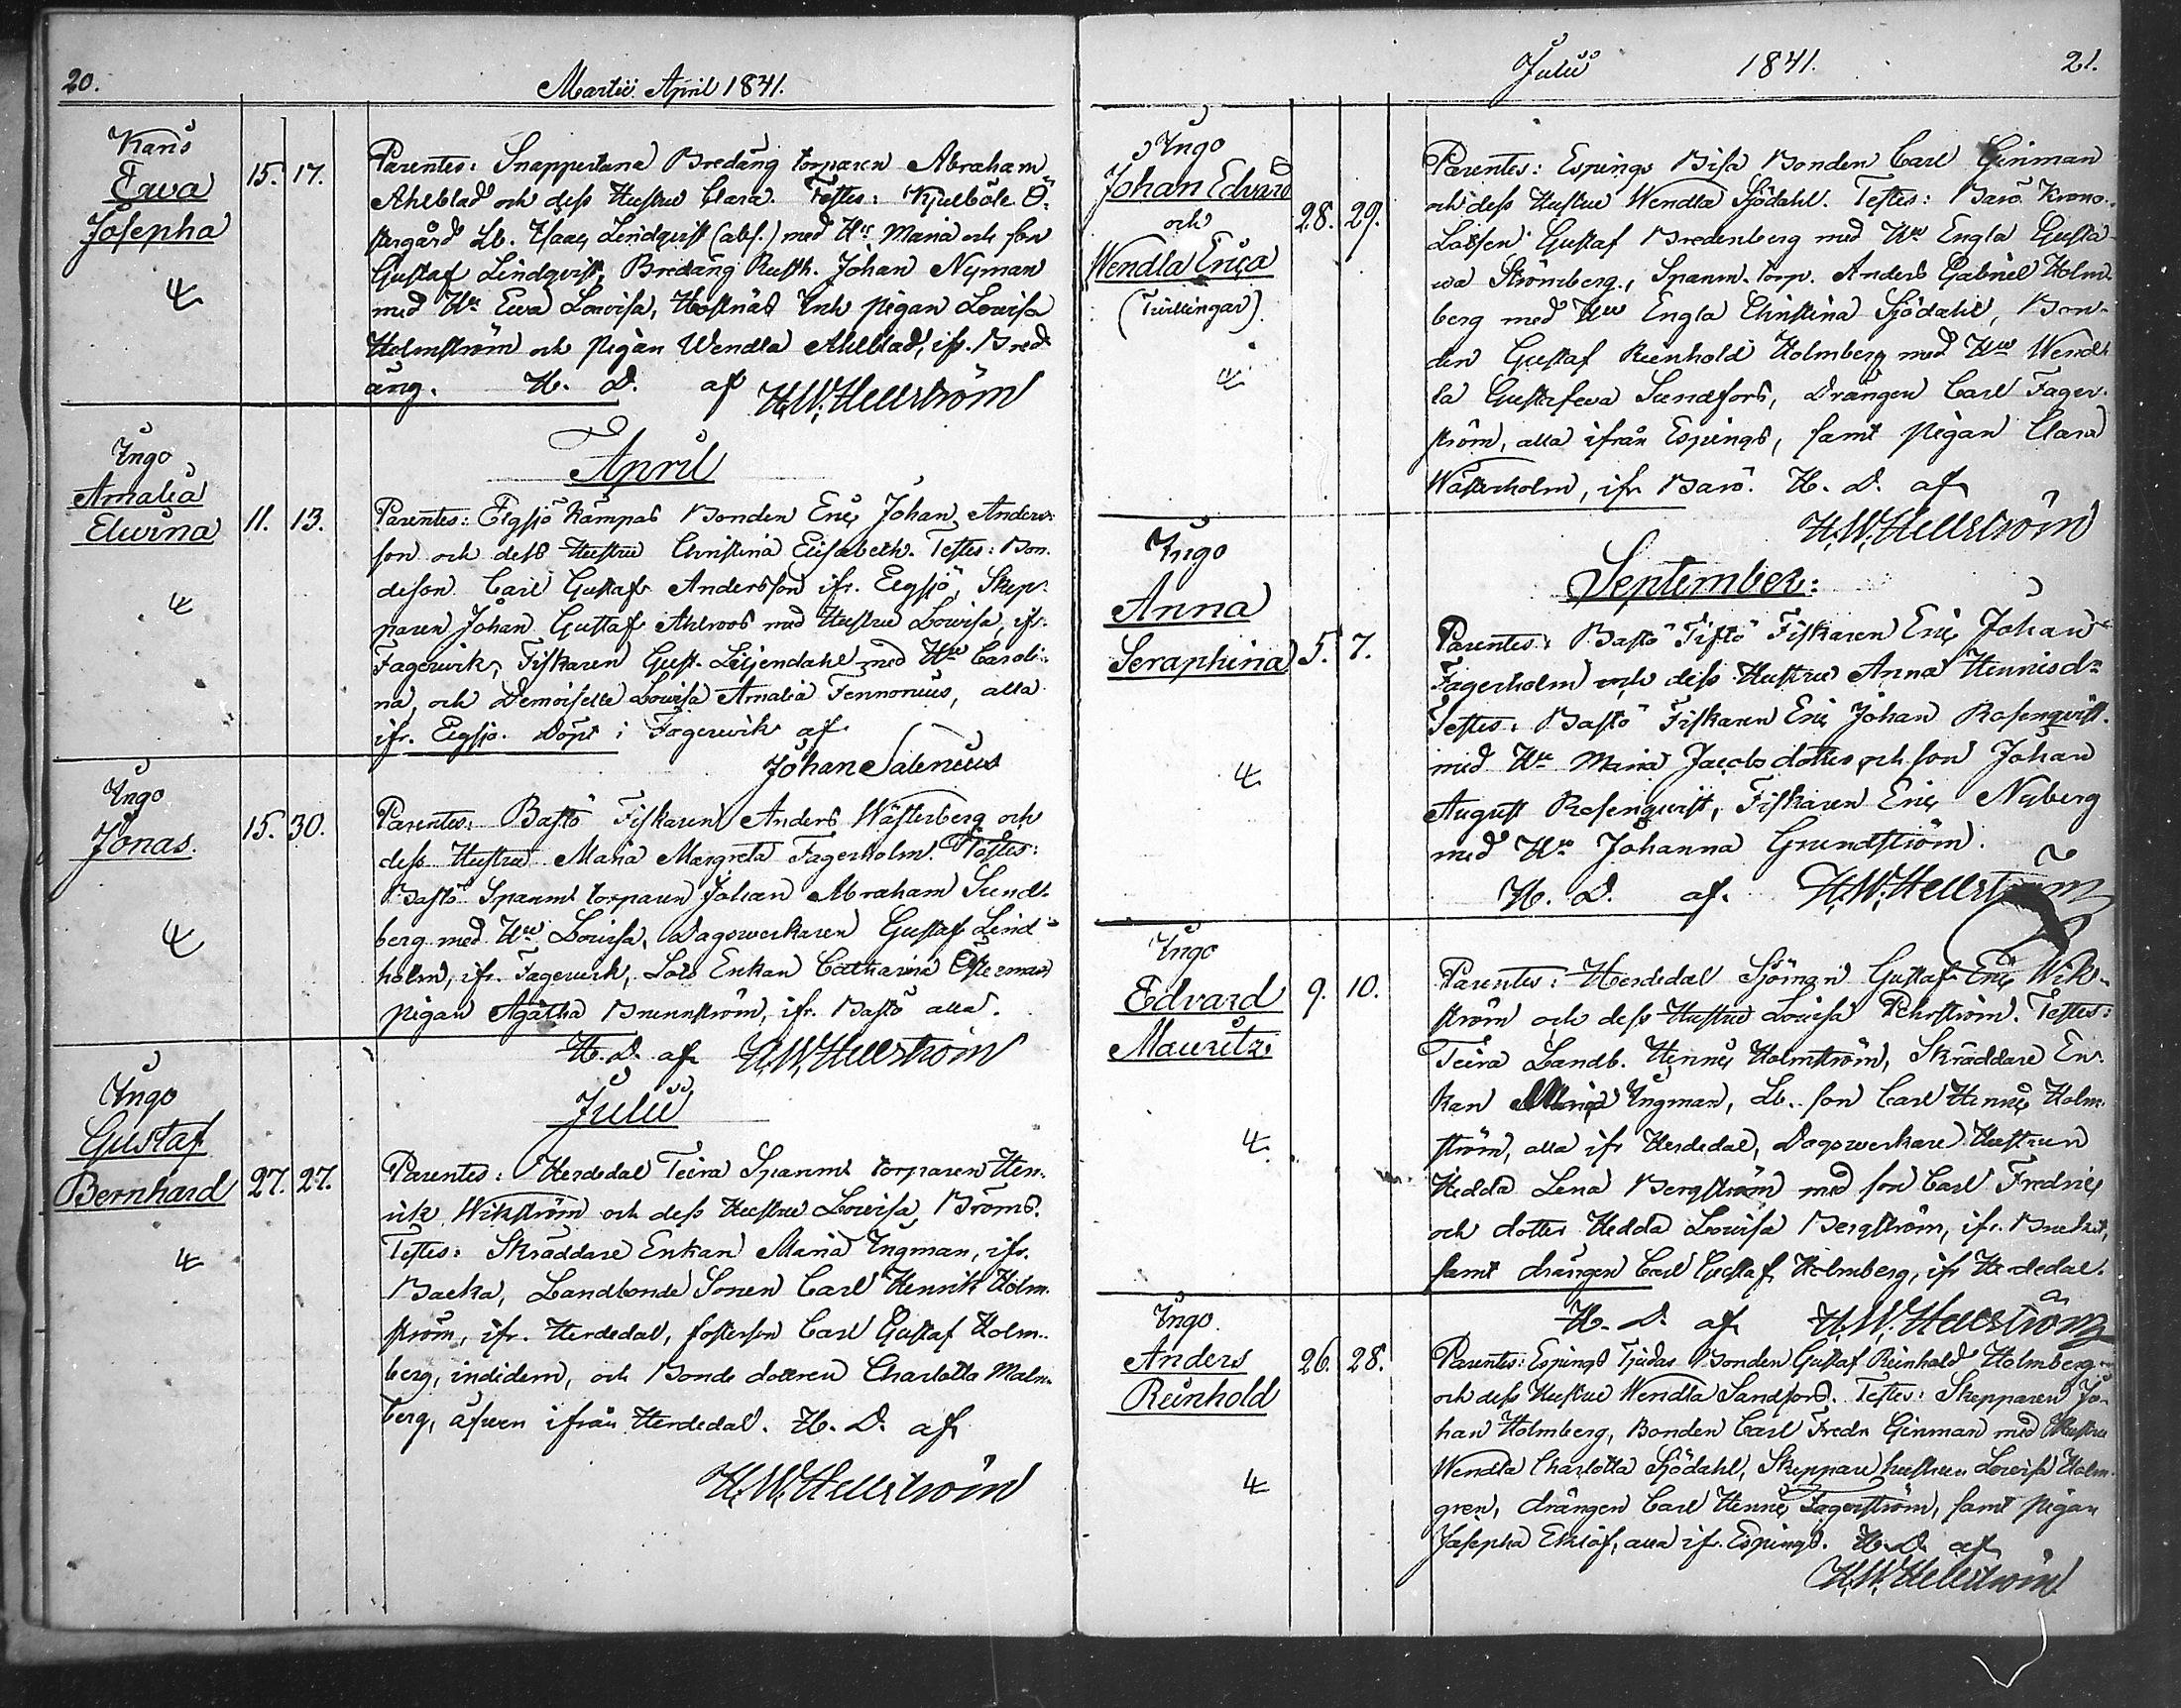 20.
Martii. April 1841.
Karis
Ewa
Josepha
15. 17.
Parentes: Snappertuna Bredäng torparen Abraham
Ahlblad och dess Hustru Clara. Testes: Kjelböle Ö-
stergård Lb. Isaac Lindqvist (abs.) med Hu Maria och son
Gustaf Lindqvist, Bredäng Rusth. Johan Nyman
med Hu Ewa Lovisa, Hostnäs Inh pigan Lovisa
Holmström och pigan Wendla Ahlblad, ifr. Bred
äng. H. D. af H.W.Hellström
April
Ingo
Amalia
Elvira
11. 13.
Parentes: Elgsjö Kämpas Bonden Eric Johan Anders-
son och dess Hustru Christina Elisabeth. Testes: Bon-
deson Carl Gustaf Andersson ifr. Elgsjö, Skep-
paren Johan Gustaf Ahlroos med Hustru Lovisa, ifr.
Fagervik, Fiskaren Gust. Liljendahl med Hu Caroli-
na, och Demoiselle Lovisa Amalia Fennonius, alla
ifr. Elgsjö. Döpt i Fagerwik af
Johan Salenius
Ingo
Jonas.
15. 30.
Parentes: Bastö Fiskaren Anders Wästerberg och
dess Hustru Maria Margreta Fagerholm. Testes:
Bastö Spanmt torparen Johan Abraham Sund-
berg med Hu Lovisa, Dagsverkaren Gustaf Lind-
holm, ifr. Fagervik, Lots Enkan Catharina Österman
pigan Agatha Brunnström, ifr. Bastö alla.
H. D. af H.W.Hellström
Julii
Ingo
Gustaf
Bernhard
27. 27.
Parentes: Herdedal Teira Spanmt torparen Hen-
rik Wikström och dess Hustru Lovisa Bröms.
Testes: Skräddare Enkan Maria Ingman, ifr.
Backa, Landbonde Sonen Carl Henrik Holm-
ström, ifr. Herdedal, fosterson Carl Gustaf Holm-
berg, indidem, och Bonde dottren Charlotta Malm-
berg, äfven ifrån Herdedal. H. D. af
H.W.Hellström
Julii 1841. 21.
Ingo
Johan Edvard
och
Wendla Erica
(Tvillingar).
28. 29.
Parentes: Espings Bisa Bonden Carl Ginman
och dess Hustru Wendla Sjödahl. Testes: Barö Krono-
Lotsen Gustaf Bredenberg med Hu Engla Gusta-
va Strömberg, Spanm. torp. Anders Gabriel Holm-
berg med Hu Engla Christina Sjödahl, Bon-
den Gustaf Reinhold Holmberg med Hu Wend-
la Gustafva Sundfors, Drängen Carl Fager-
ström, alla ifrån Espings, samt pigan Clara
Wästerholm, ifr Barö. H. D. af
H.W.Hellström
September:
Ingo
Anna
Seraphina
5. 7.
Parentes: Bastö Tistö Fiskaren Eric Johan
Fagerholm och dess Hustru Anna Henricsdr
Testes: Bastö Fiskaren Eric Johan Rosenqvist
med Hu Maria Jacobs dotter och son Johan
August Rosenqvist, Fiskaren Eric Nyberg
med Hu Johanna Grundström.
H. D. af. H.W.Hellström
Ingo
Edvard
Mauritz
9. 10.
Parentes: Herdedal Sjöman Gustaf Eric Wik-
ström och dess Hustru Lovisa Pehrström. Testes:
Teira Landb. Henric Holmström, Skräddare En-
kan Maria Ingman, Lb. son Carl Henric Holm-
ström, alla ifr Herdedal, Dagsverkare Hustrun
Hedda Lena Bergström med son Carl Fredric
och dotter Hedda Lovisa Bergström, ifr.
samt drängen Carl Gustaf Holmberg, ifr Herdedal.
H. D. af H.W.Hellström
Ingo.
Anders
Reinhold
26. 28.
Parentes: Espings Tjudas Bonden Gustaf Reinhold Holmberg
och dess Hustru Wendla Sandfors. Testes: Skepparen Jo-
han Holmberg, Bonden Carl Fredr Ginman med Hustru
Wendla Charlotta Sjödahl, Skeppare hustrun Lovisa Holm-
gren, drängen Carl Henric Fagerström, samt pigan
Josepha Eklöf, alla if. Espings. H. D. af
H.W.Hellström